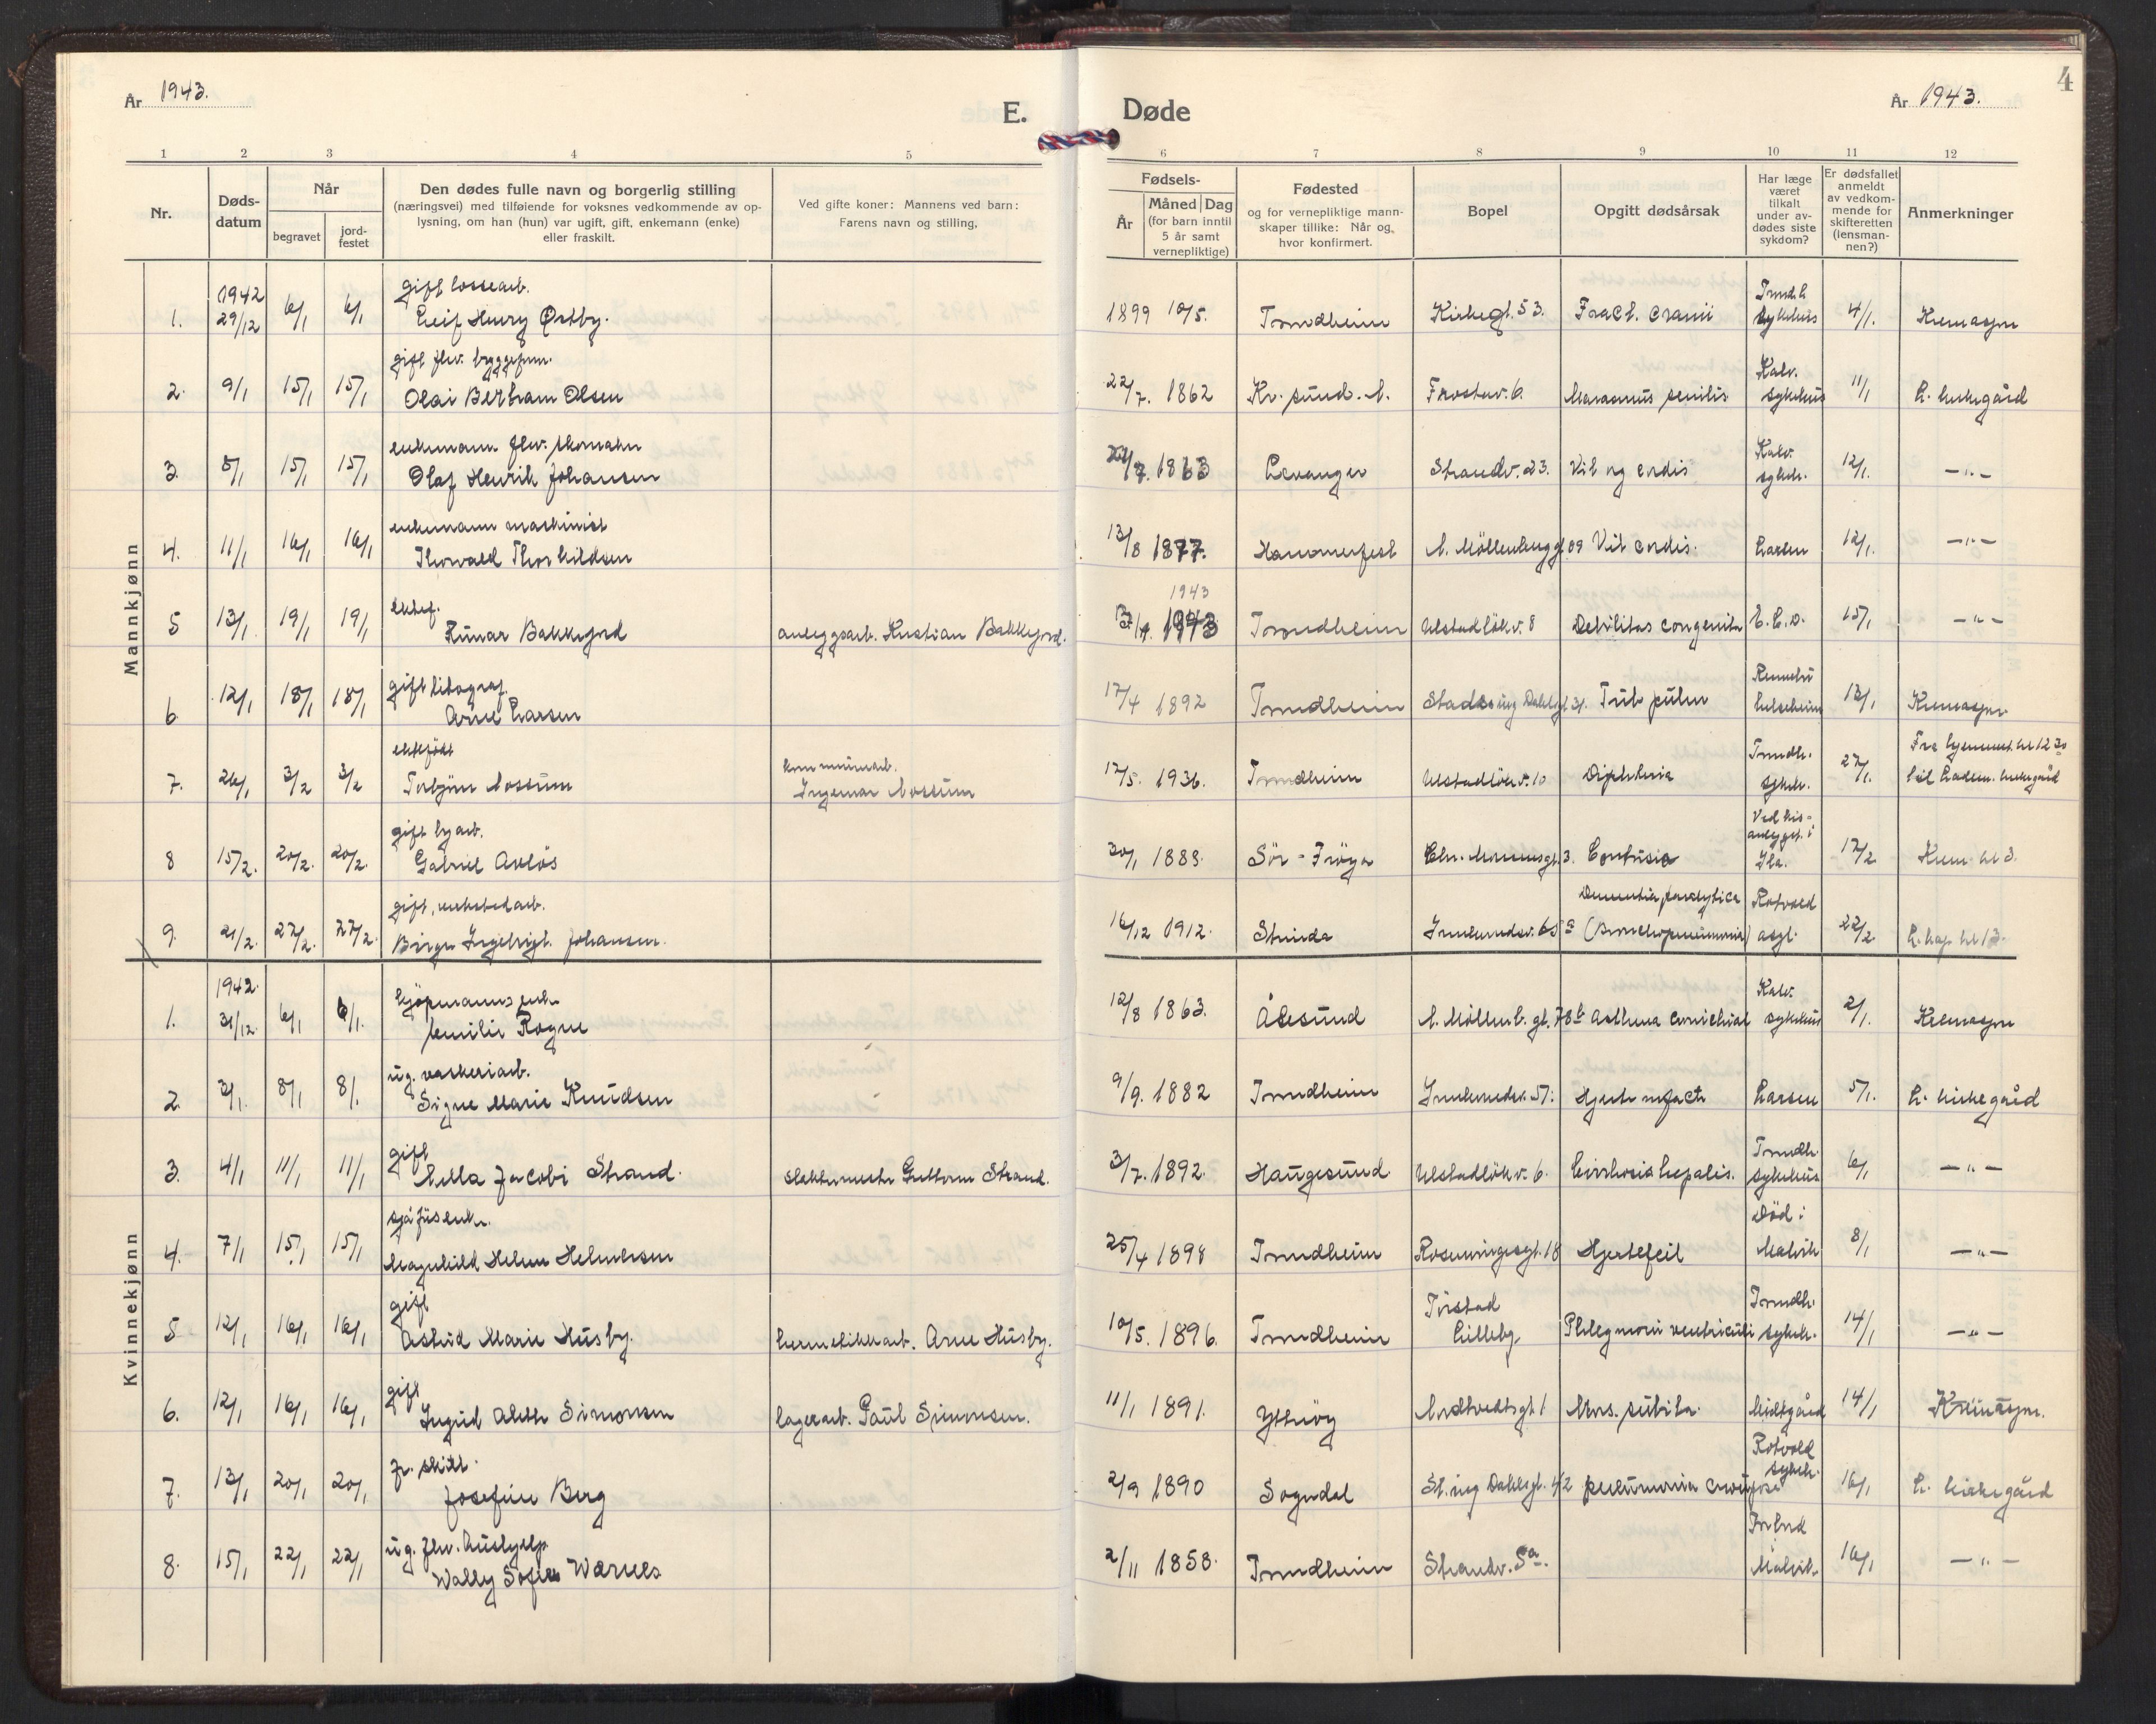 År 1943.
E.
Døde
År 1943.
4
1 2 3 4 5 6 7 8 9 10 11 12
Nr.
Døds-
datum
Når
begravet
jord-
festet
Den dødes fulle navn og borgerlig stilling
(næringsvei) med tilføiende for voksnes vedkommende av op-
lysning, om han (hun) var ugift, gift, enkemann (enke)
eller fraskilt.
Ved gifte koner: Mannens ved barn:
Farens navn og stilling,
Fødsels-
År
Måned Dag
(for barn inntil
5 år samt
vernepliktige)
Fødested
og for vernepliktige mann-
skaper tillike: Når og
hvor konfirmert.
Bopel
Opgitt dødsårsak
Har læge
været
tilkalt
under av-
dødes siste
sykdom?
Er dødsfallet
anmeldt
av vedkom-
mende for
skifteretten
(lensman-
nen?)
Anmerkninger
Mannkjønn
1942 gift lossearb. Trndh.
1. 29/12 6/1 6/1 Leif Henry Østby. 1899 10/5. Trondheim Kirkegt. 53. Fract. cranii sykehus 4/1. Kremasjon
gift flv. byggefirm. Kalv.
2. 9/1 15/1 15/1 Olai Bertram Olsen 22/7. 1862 Kr. sund. N. Frostav. 6. Marasmus senilis sykehus 11/1 L. kirkegård
enkemann flv. skomaker Kalv.
3. 8/1 15/1 15/1 Olaf Henrik Johansen 1863 Levanger Strandv. 23. Vit og cordis sykeh. 12/1. —"—
enkemann maskinist
4. 11/1 16/1 16/1 Thorvald Thorkildsen 13/8 1877. Hammerfest N. Möllenberggt. 09 Vit cordis. Larsen 12/1. —"—
ektef. 1943
5 13/1 19/1 19/1 Runar Bakkejord anleggsarb. Kristian Bakkejord. 1943 Trondheim Ulstadlökv. 8 Debilitas congenita E.C.D. 15/1 —"—
gift litograf.
6 12/1 18/1 18/1 Arne Larsen 17/4 1892 Trondheim Stadsing Dahlsgt. 31. Tub pulm helseheim 13/1 Kremasjon
ektefödt kommunearb. Trondh. Fra hjemmet kl 12 30
7. 26/1 3/2 3/2 Torbjörn Mossum Ingemar Mossum 17/5. 1936. Trondheim Ulstadlökv. 10 Diphteria sykeh. 27/1. til Ladem. kirkegård
gift byarb. Ved kis-
anlegget i
8 15/2. 20/2. 20/2. Gabriel Avlös 30/1 1883. Sör-Fröya Chr. Monsensgt. 3. Contusio Ila. 17/2 Krem kl 3.
gift, verkstedarb. Dementia paralytica Rotvoll
9. 21/2. 27/2. 27/2. Birger Ingebrigt. Johansen. 16/12 1912. Strinda Innherredsv. 65a (Bronchopneumonia) asyl. 22/2 L. kap. kl 13.
Kvinnekjønn
1942. kjöpmanns enke Kalv.
1. 31/12. 6/1 6/1. Emilie Rogne 12/8 1863. Ålesund N. Möllenb. gt. 78b Asthma bronchiale sykehus 2/1. Kremasjon
ug. vaskeriarb.
2. 3/1. 8/1 8/1. Signe Marie Knudsen 9/9. 1882 Trondheim Innherredsv. 57. Hjerteinfarct Larsen 5/1. L. kirkegård
gift Trondh.
3. 4/1 11/1 11/1 Milla Jacobi Strand. slaktermester Guttorm Strand. 3/7. 1892. Haugesund Ulstadlökv. 6. Cirrhosis hepatis. sykehus 6/1 —"—
sjåförenke. Död i
4. 7/1 15/1 15/1 Magnhild Helene Helmersen 25/4 1898 Trondheim Rosenvingesgt. 18 Hjertefeil Malvik 8/1 —"—
gift Tirstad Trondh.
5 12/1 16/1 16/1 Astrid Marie Husby. hermetikkarb. Arne Husby. 10/5. 1896. Trondheim Lilleby Phlegmoni ventriculi sykeh. 14/1 —"—
gift
6. 12/1 16/1 16/1 Ingrid Alette Simonsen lagerarb. Paul Simonsen. 11/1 1891. Ytteröy Nordtvedtsgt. 1 Mors. subita. Midtgård 14/1 Kremasjon.
fr. skilt. Rotvold
sykeh.
7. 13/1 20/1 20/1 Josefine Berg 2/9 1890 Sogndal St. ing Dahlsgt. 42 pneumonia croupose 16/1 L. kirkegård
ug. flv. hushjelp
8. 15/1 22/1 22/1 Wally Sofie Wærnes 2/11 1858. Trondheim Strandv. 5a. Malvik. 16/1 —"—